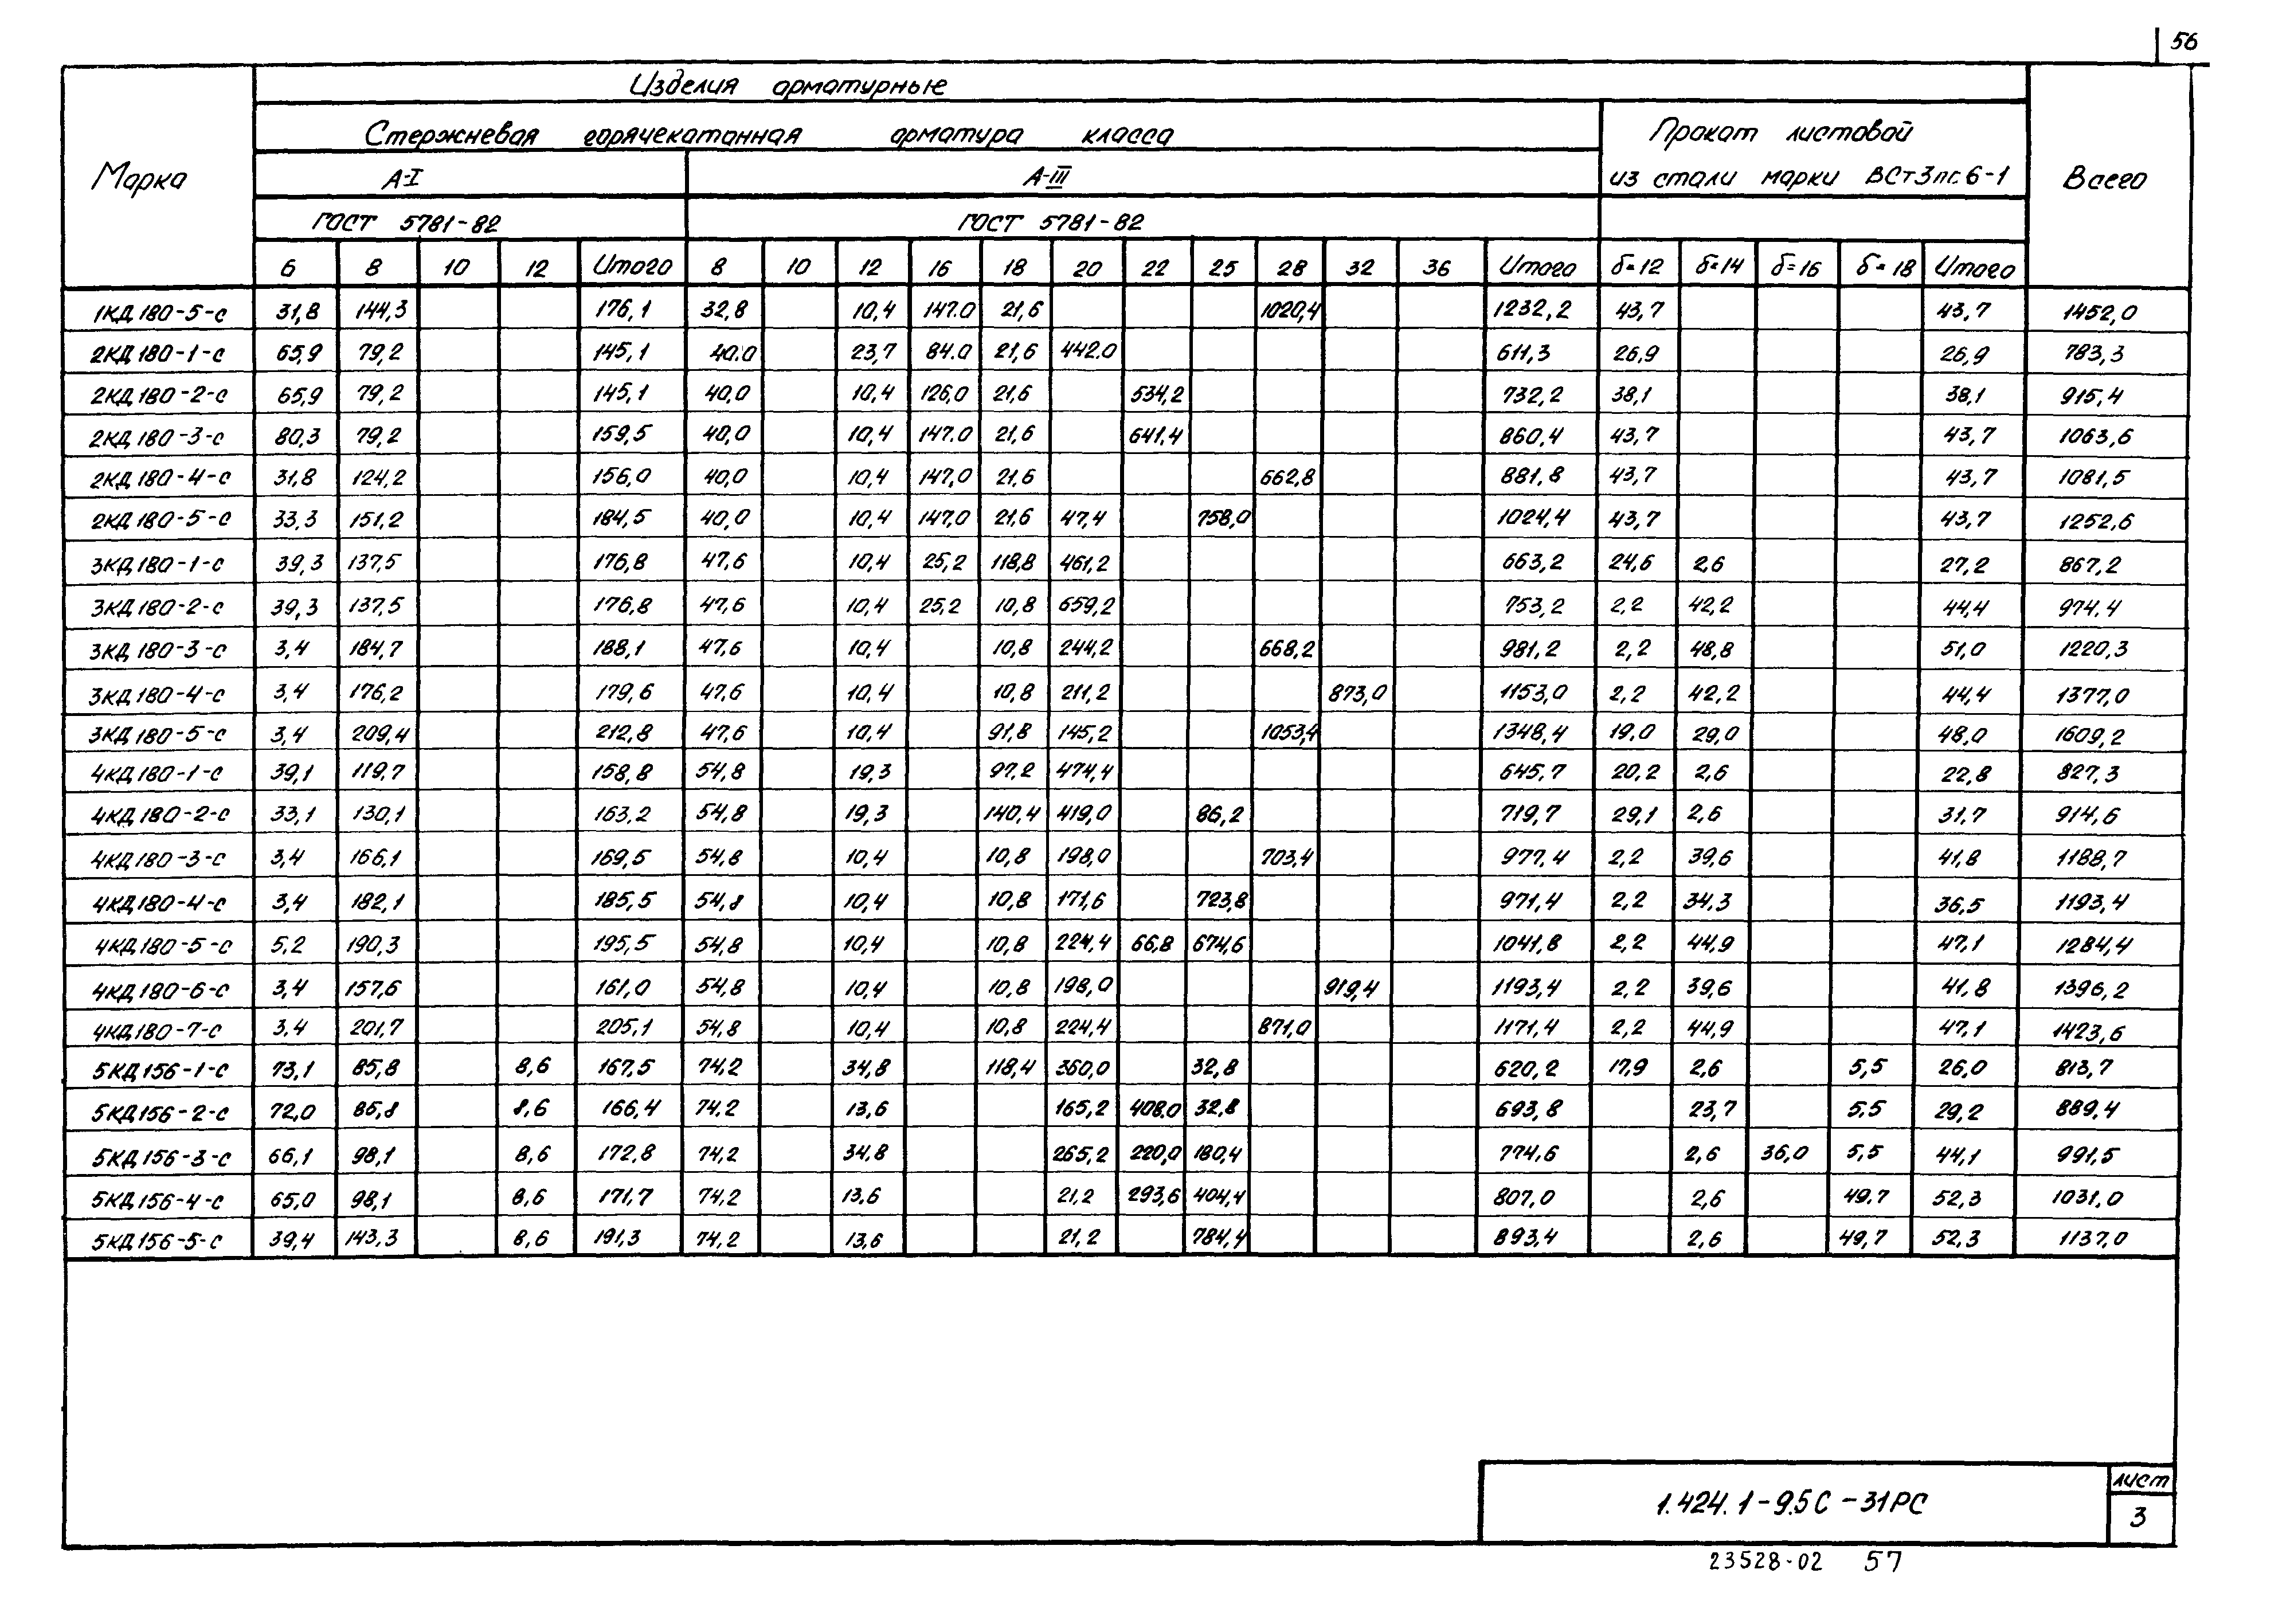 56
Изделия арматурные
Стержневая горячекатанная арматура класса
Прокат листовой
Марка А-I А-III из стали марки ВСт3пс6-1 Всего
ГОСТ 5781-82 ГОСТ 5781-82
6 8 10 12 Итого 8 10 12 16 18 20 22 25 28 32 36 Итого δ=12 δ=14 δ=16 δ=18 Итого
1КД180-5-с 31,8 144,3 176,1 32,8 10,4 147.0 21,6 1020,4 1232,2 43,7 43,7 1452,0
2КД180-1-с 65,9 79,2 145,1 40.0 23,7 84.0 21,6 442.0 611,3 26,9 26,9 783,3
2КД180-2-с 65,9 79,2 145,1 40,0 10,4 126,0 21,6 534,2 732,2 38,1 38,1 915,4
2КД180-3-с 80,3 79,2 159,5 40,0 10,4 147.0 21,6 641,4 860,4 43,7 43,7 1063,6
2КД180-4-с 31,8 124,2 156,0 40,0 10,4 147,0 21,6 662,8 881,8 43,7 43,7 1081,5
2КД180-5-с 33,3 151,2 184,5 40,0 10,4 147,0 21,6 47,4 758,0 1024,4 43,7 43,7 1252,6
3КД180-1-с 39,3 137,5 176,8 47,6 10,4 25,2 118,8 461,2 663,2 24,6 2,6 27,2 867,2
3КД180-2-с 39,3 137,5 176,8 47,6 10,4 25,2 10,8 659,2 753,2 2,2 42,2 44,4 974,4
3КД180-3-с 3,4 184,7 188,1 47,6 10,4 10,8 244,2 668,2 981,2 2,2 48,8 51,0 1220,3
3КД180-4-с 3,4 176,2 179,6 47,6 10,4 10,8 211,2 873,0 1153,0 2,2 42,2 44,4 1377,0
3КД180-5-с 3,4 209,4 212,8 47,6 10,4 91,8 145,2 1053,4 1348,4 19,0 29,0 48,0 1609,2
4КД180-1-с 39,1 119,7 158,8 54,8 19,3 97,2 474,4 645,7 20,2 2,6 22,8 827,3
4КД180-2-с 33,1 130,1 163,2 54,8 19,3 140,4 419,0 86,2 719,7 29,1 2,6 31,7 914,6
4КД180-3-с 3,4 166,1 169,5 54,8 10,4 10,8 198,0 703,4 977,4 2,2 39,6 41,8 1188,7
4КД180-4-с 3,4 182,1 185,5 54,8 10,4 10,8 171,6 723,8 971,4 2,2 34,3 36,5 1193,4
4КД180-5-с 5,2 190,3 195,5 54,8 10,4 10,8 224,4 66,8 674,6 1041,8 2,2 44,9 47,1 1284,4
4КД180-6-с 3,4 157,6 161,0 54,8 10,4 10,8 198,0 919,4 1193,4 2,2 39,6 41,8 1396,2
4КД180-7-с 3,4 201,7 205,1 54,8 10,4 10,8 224,4 871,0 1171,4 2,2 44,9 47,1 1423,6
5КД156-1-с 73,1 85,8 8,6 167,5 74,2 34,8 118,4 360,0 32,8 620,2 17,9 2,6 5,5 26,0 813,7
5КД156-2-с 72,0 85,8 8,6 166,4 74,2 13,6 165,2 408.0 32,8 693,8 23,7 5,5 29,2 889,4
5КД156-3-с 66,1 98,1 8,6 172,8 74,2 34,8 265,2 220,0 180,4 774,6 2,6 36,0 5,5 44,1 991,5
5КД156-4-с 65,0 98,1 8,6 171,7 74,2 13,6 21,2 293,6 404,4 807,0 2,6 49,7 52,3 1031,0
5КД156-5-с 39,4 143,3 8,6 191,3 74,2 13,6 21,2 784,4 893,4 2,6 49,7 52,3 1137,0
1.424.1-9.5С-31РС
лист
3
23528-02 57